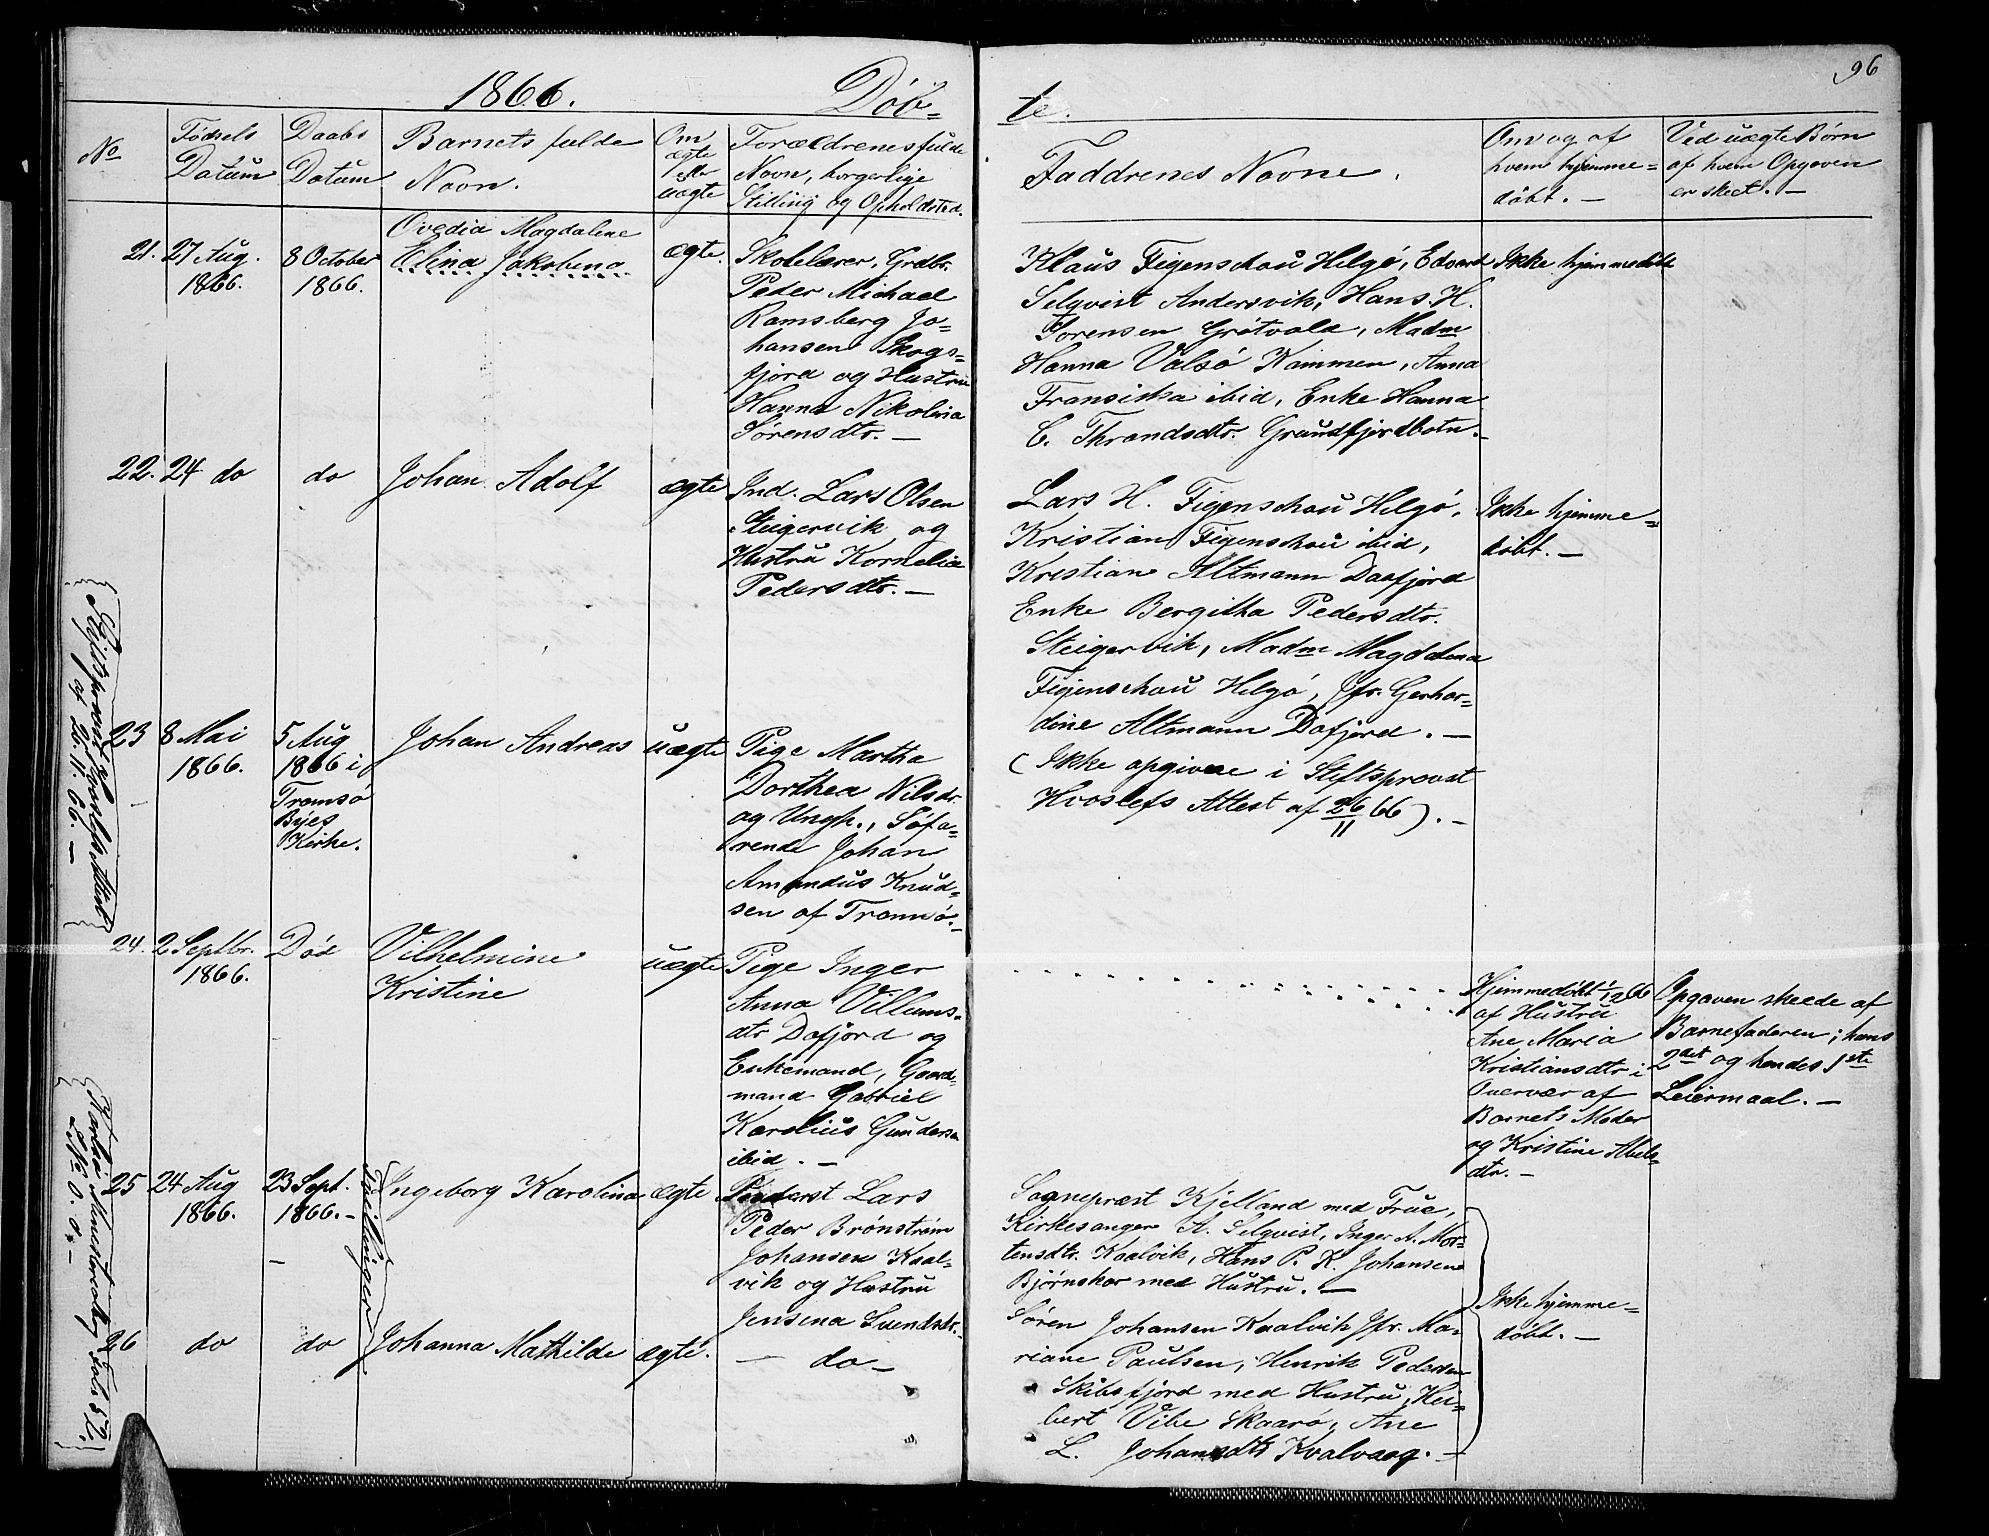 96
1866. Døbte.
No
Fødsels Datum
Daabs Datum
Barnets fulde Navn.
Om ægte eller uægte
Forældrenes fulde Navn, borgerlige Stilling og Opholdsted.
Faddrenes Navne.
Om og af hvem hjemme=døbt. —
Ved uægte Børn af hvem Opgaven er skeet. —
21.
27 Aug. 1866.
8 October 1866.
Ovedia Magdalene
Elina Jakobina
ægte.
Skolelærer, Grdbr.
Peder Michael
Ramsberg Jo=
hansen Skogs=
fjord og Hustru
Hanna Nikolina
Sørensdtr. —
Klaus Figenschou Helgø, Edvard
Selqvist Andersvik, Hans H.
Sorensen Grøtvold, Madm
Hanna Valsø Kammen, Anna
Fransiska ibid, Enke Hanna
C. Thrandsdtr. Grundfjordbotn. —
Ikke hjemmedøbt
22.
24 do
do
Johan Adolf
ægte
Ind. Lars Olsen
Steigervik og
Hustru Kornelia
Pedersdtr. —
Lars H. Figenschou Helgø,
Kristian Figenschou ibid,
Kristian Altmann Daafjord
Enke Bergitha Pedersdtr.
Steigervik, Madm Magdalena
Figenschou Helgø, Jfr. Gerhar=
dine Altmann Dafjord. —
Ikke hjemme=
døbt. —
23
8 Mai 1866.
5 Aug
1866 i
Tromsø
Byes
Kirke.
Johan Andreas
uægte
Pige Martha
Dorthea Nilsdr.
og Ungk., Søfa=
rende Johan
Amandus Knud=
sen af Tromsø. —
(Ikke opgivne i Stiftsprovst
Hvoslefs Attest af 26/11 66). —
24.
2 Septbr. 1866.
Død
Vilhelmine
Kristine
uægte
Pige Inger
Anna Villums=
dtr Dafjord og
Enkemand, Gaard=
mand Gabriel
Karolius Gunderse
ibid. —
Hjemmedøbt 1/12 66
af Hustru
Ane Maria
Kristiansdtr i
Overvær af
Barnets Moder
og Kristine Abels=
dtr. —
Opgaven skeede af
Barnefaderen; hans
2det og hendes 1ste
Leiermaal. —
25
24 Aug 1866.
23 Sept. 1866. —
Tvillinger
Ingeborg Karolina
ægte
Lars
Peder Brønstrøm
Johansen Kaal=
vik og Hustru
Jensina Lundsdtr. —
Sognepræst Kjelland med Frue,
Kirkesanger A. Selqvist, Inger A. Mor=
tensdtr. Kaalvik, Hans P. K. Johansen
Bjørnskar med Hustru. —
Ikke hjemme=
døbt. —
26
do
do
Johanna Mathilde
ægte.
— do —
Søren Johansen Kaalvik Jfr. Ma=
riane Paulsen, Henrik Pedersen
Skibsfjord med Hustru, Hei=
bert Vibe Skaarø, Ane
L. Johansdtr Kvalvaag. —
af 26.11.66. —